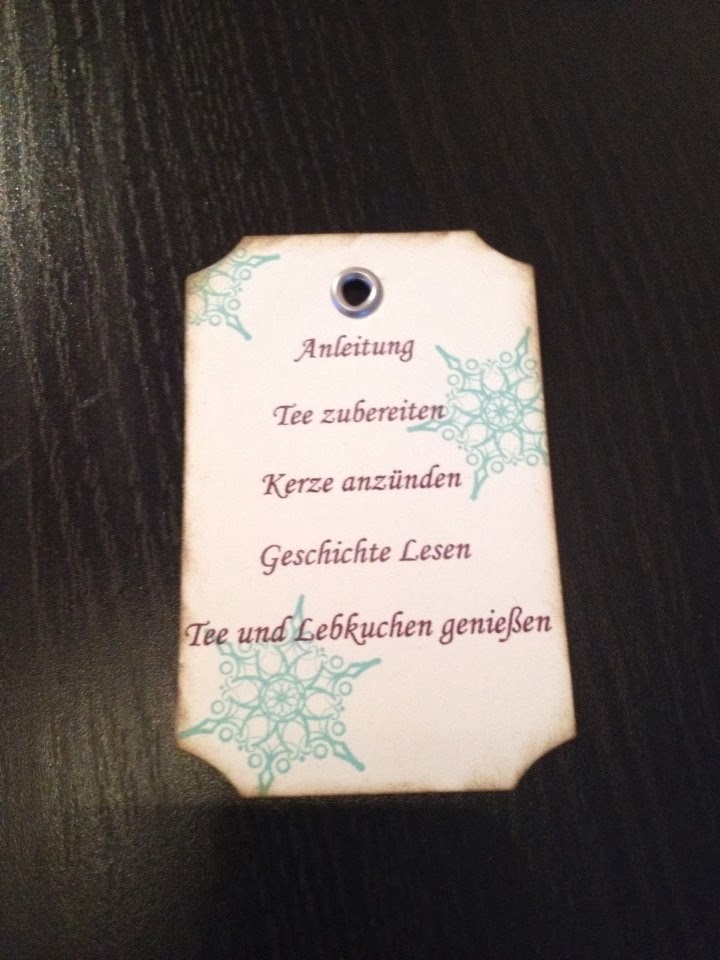 Anleitung
Tee zubereiten
Kerze anzünden
Geschichte Lesen
Tee und Lebkuchen genießen